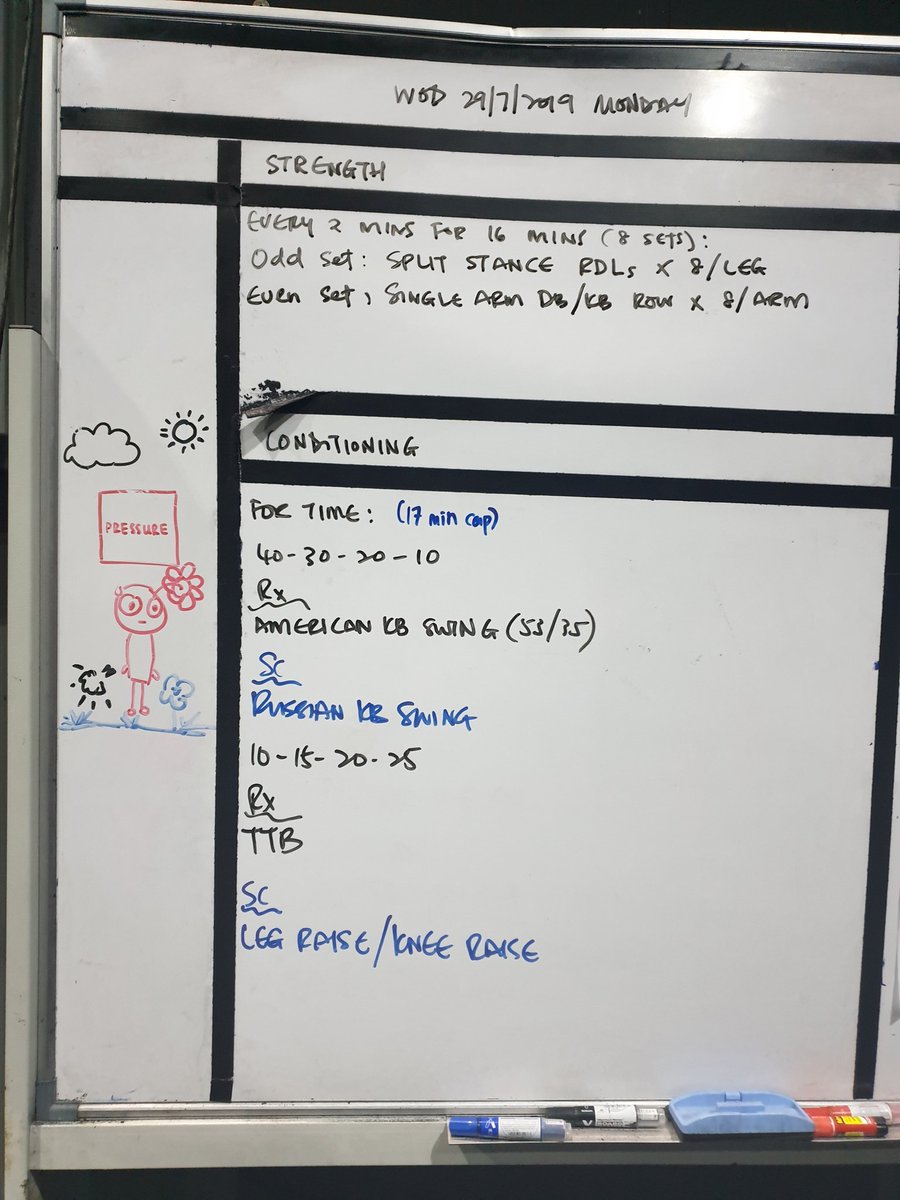 WOD 29/7/2019 MONDAY
STRENGTH
EVERY 2 MINS FOR 16 MINS (8 SETS):
Odd Set: SPLIT STANCE RDLs X 8/LEG
Even Set: SINGLE ARM DB/KB ROW X 8/ARM
CONDITIONING
FOR TIME: (17 min cap)
40-30-20-10
Rx
AMERICAN KB SWING (53/35)
Sc
RUSSIAN KB SWING
10-15-20-25
Rx
TTB
Sc
LEG RAISE/KNEE RAISE
PRESSURE